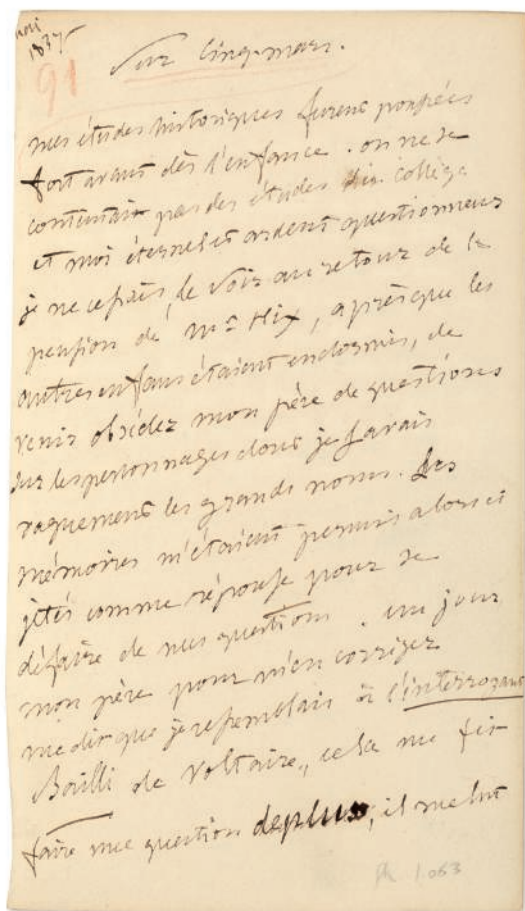 mai
1837
91
Sur Cinq-mars.
mes études historiques furent poussées
fort avant dès l'enfance. on ne se
contentait pas des études du Collège
et moi éternel et ardent questionneur
je ne cessais, le soir au retour de la
pension de Mr Hix, après que les
autres enfans étaient endormis, de
venir obséder mon père de questions
sur les personnages dont je savais
vaguement les grands noms. Les
mémoires m'étaient permis alors et
jetés comme réponse pour se
défaire de mes questions. un jour
mon père pour m'en corriger
me dit que je ressemblais à l'interrogant
Bailli de Voltaire, cela me fit
faire une question de plus, il me lut
1.063